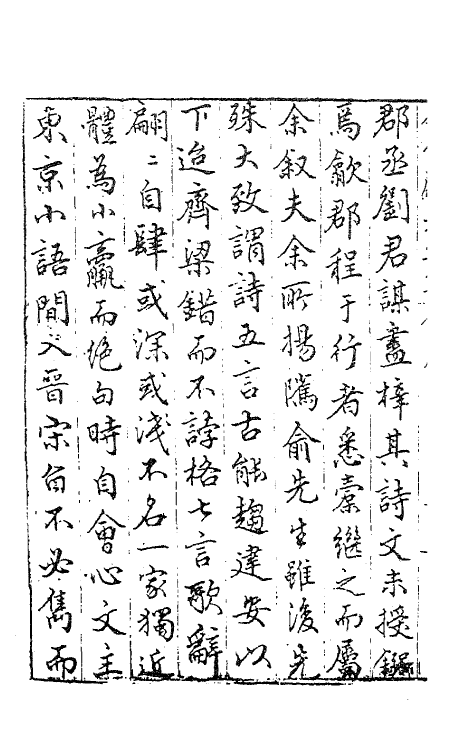 郡丞劉君謀盡梓其詩文未授
焉歙郡程于行者悉橐繼之而屬
余叙夫余所揚隲俞先生雖後先
殊大致謂詩五言古能趨建安以
下迨齊梁錯而不誖格七言歌辭
翩〻自肆或深或淺不名一家獨近
體為小羸而絶句時自會心文主
東京小語間入晉宋句不必雋而